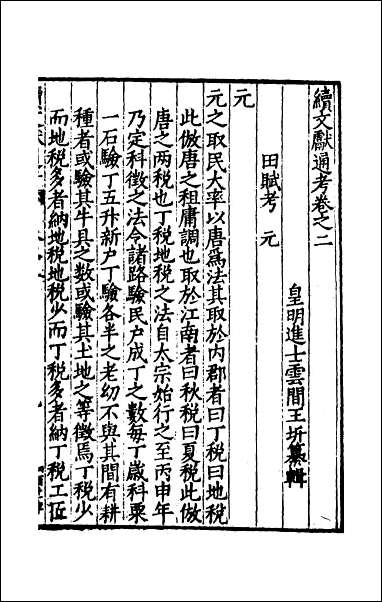 續文獻通考卷之二
皇明進士雲間王圻纂輯
田賦考 元
元
元之取民大率以唐爲法其取於内郡者曰丁稅曰地稅
此倣唐之租庸調也取於江南者曰秋稅曰夏稅此倣
唐之两稅也丁稅地稅之法自太宗始行之至丙申年
乃定科徵之法令諸路驗民戸成丁之數每丁歲科粟
一石驗丁五升新戸丁驗各半之老幼不與其間有耕
種者或驗其牛具之數或驗其土地之等徵焉丁稅少
而地稅多者納地稅地稅少而丁稅多者納丁稅工匠